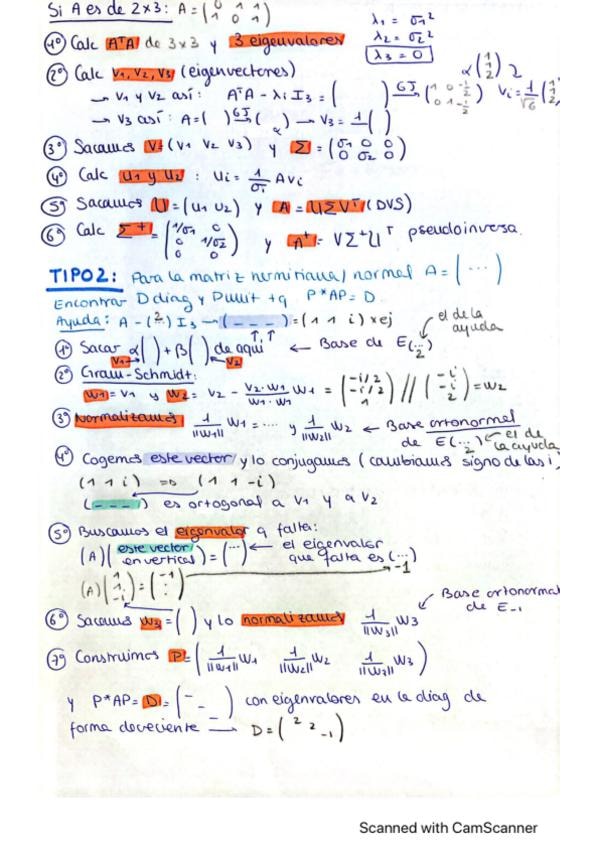 Si A es de 2x3: A = (0 1 1 / 1 0 1)
λ1 = σ1²
λ2 = σ2²
λ3 = 0
1º Calc AᵀA de 3x3 y 3 eigenvalores
2º Calc v1, v2, v3 (eigenvectores)
→ v1 y v2 así: AᵀA - λi I3 = ( ) GJ
→ v3 así: A = ( ) GJ → v3 = 1 ( )
3º Sacamos V = (v1 v2 v3) y Σ = (σ1 0 0 / 0 σ2 0)
4º Calc u1 y u2: ui = 1/σi Avi
5º Sacamos U = (u1 u2) y A = UΣVᵀ (DVS)
6º Calc Σ⁺ = (1/σ1 0 / 0 1/σ2 / 0 0) y A⁺ = VΣ⁺Uᵀ pseudoinversa.
TIPO 2: Para la matriz hermitiana/normal A = (...)
Encontrar D diag y P unit tq P*AP = D
Ayuda: A - (2...) I3 → (_ _ _) = (1 1 i) x ej
el de la ayuda
1º Sacar α( ) + β( ) de aquí ← Base de E(...)
v1 v2
2
2º Gram-Schmidt:
w1 = v1 y w2 = v2 - v2·w1/w1·w1 w1 = (-i/2 / -i/2 / 1) // (-i / -i / 2) = w2
3º Normalizamos 1/||w1|| w1 = ... y 1/||w2|| w2 ← Base ortonormal
de E(...) ← el de la ayuda
2
4º Cogemos este vector y lo conjugamos (cambiamos signo de las i
(1 1 i) => (1 1 -i)
(_ _ _) es ortogonal a v1 y a v2
5º Buscamos el eigenvalor q falta:
(A)(este vector en vertical) = (...) ← el eigenvalor
que falta es (...)
-1
(A)(1 / 1 / -i) = (-1 / : / :)
6º Sacamos w3 = ( ) y lo normalizamos 1/||w3|| w3
Base ortonormal
de E-1
7º Construimos P = (1/||w1|| w1 1/||w2|| w2 1/||w3|| w3)
y P*AP = D = (- - -) con eigenvalores en la diag de
forma decreciente → D = (2 2 -1)
Scanned with CamScanner